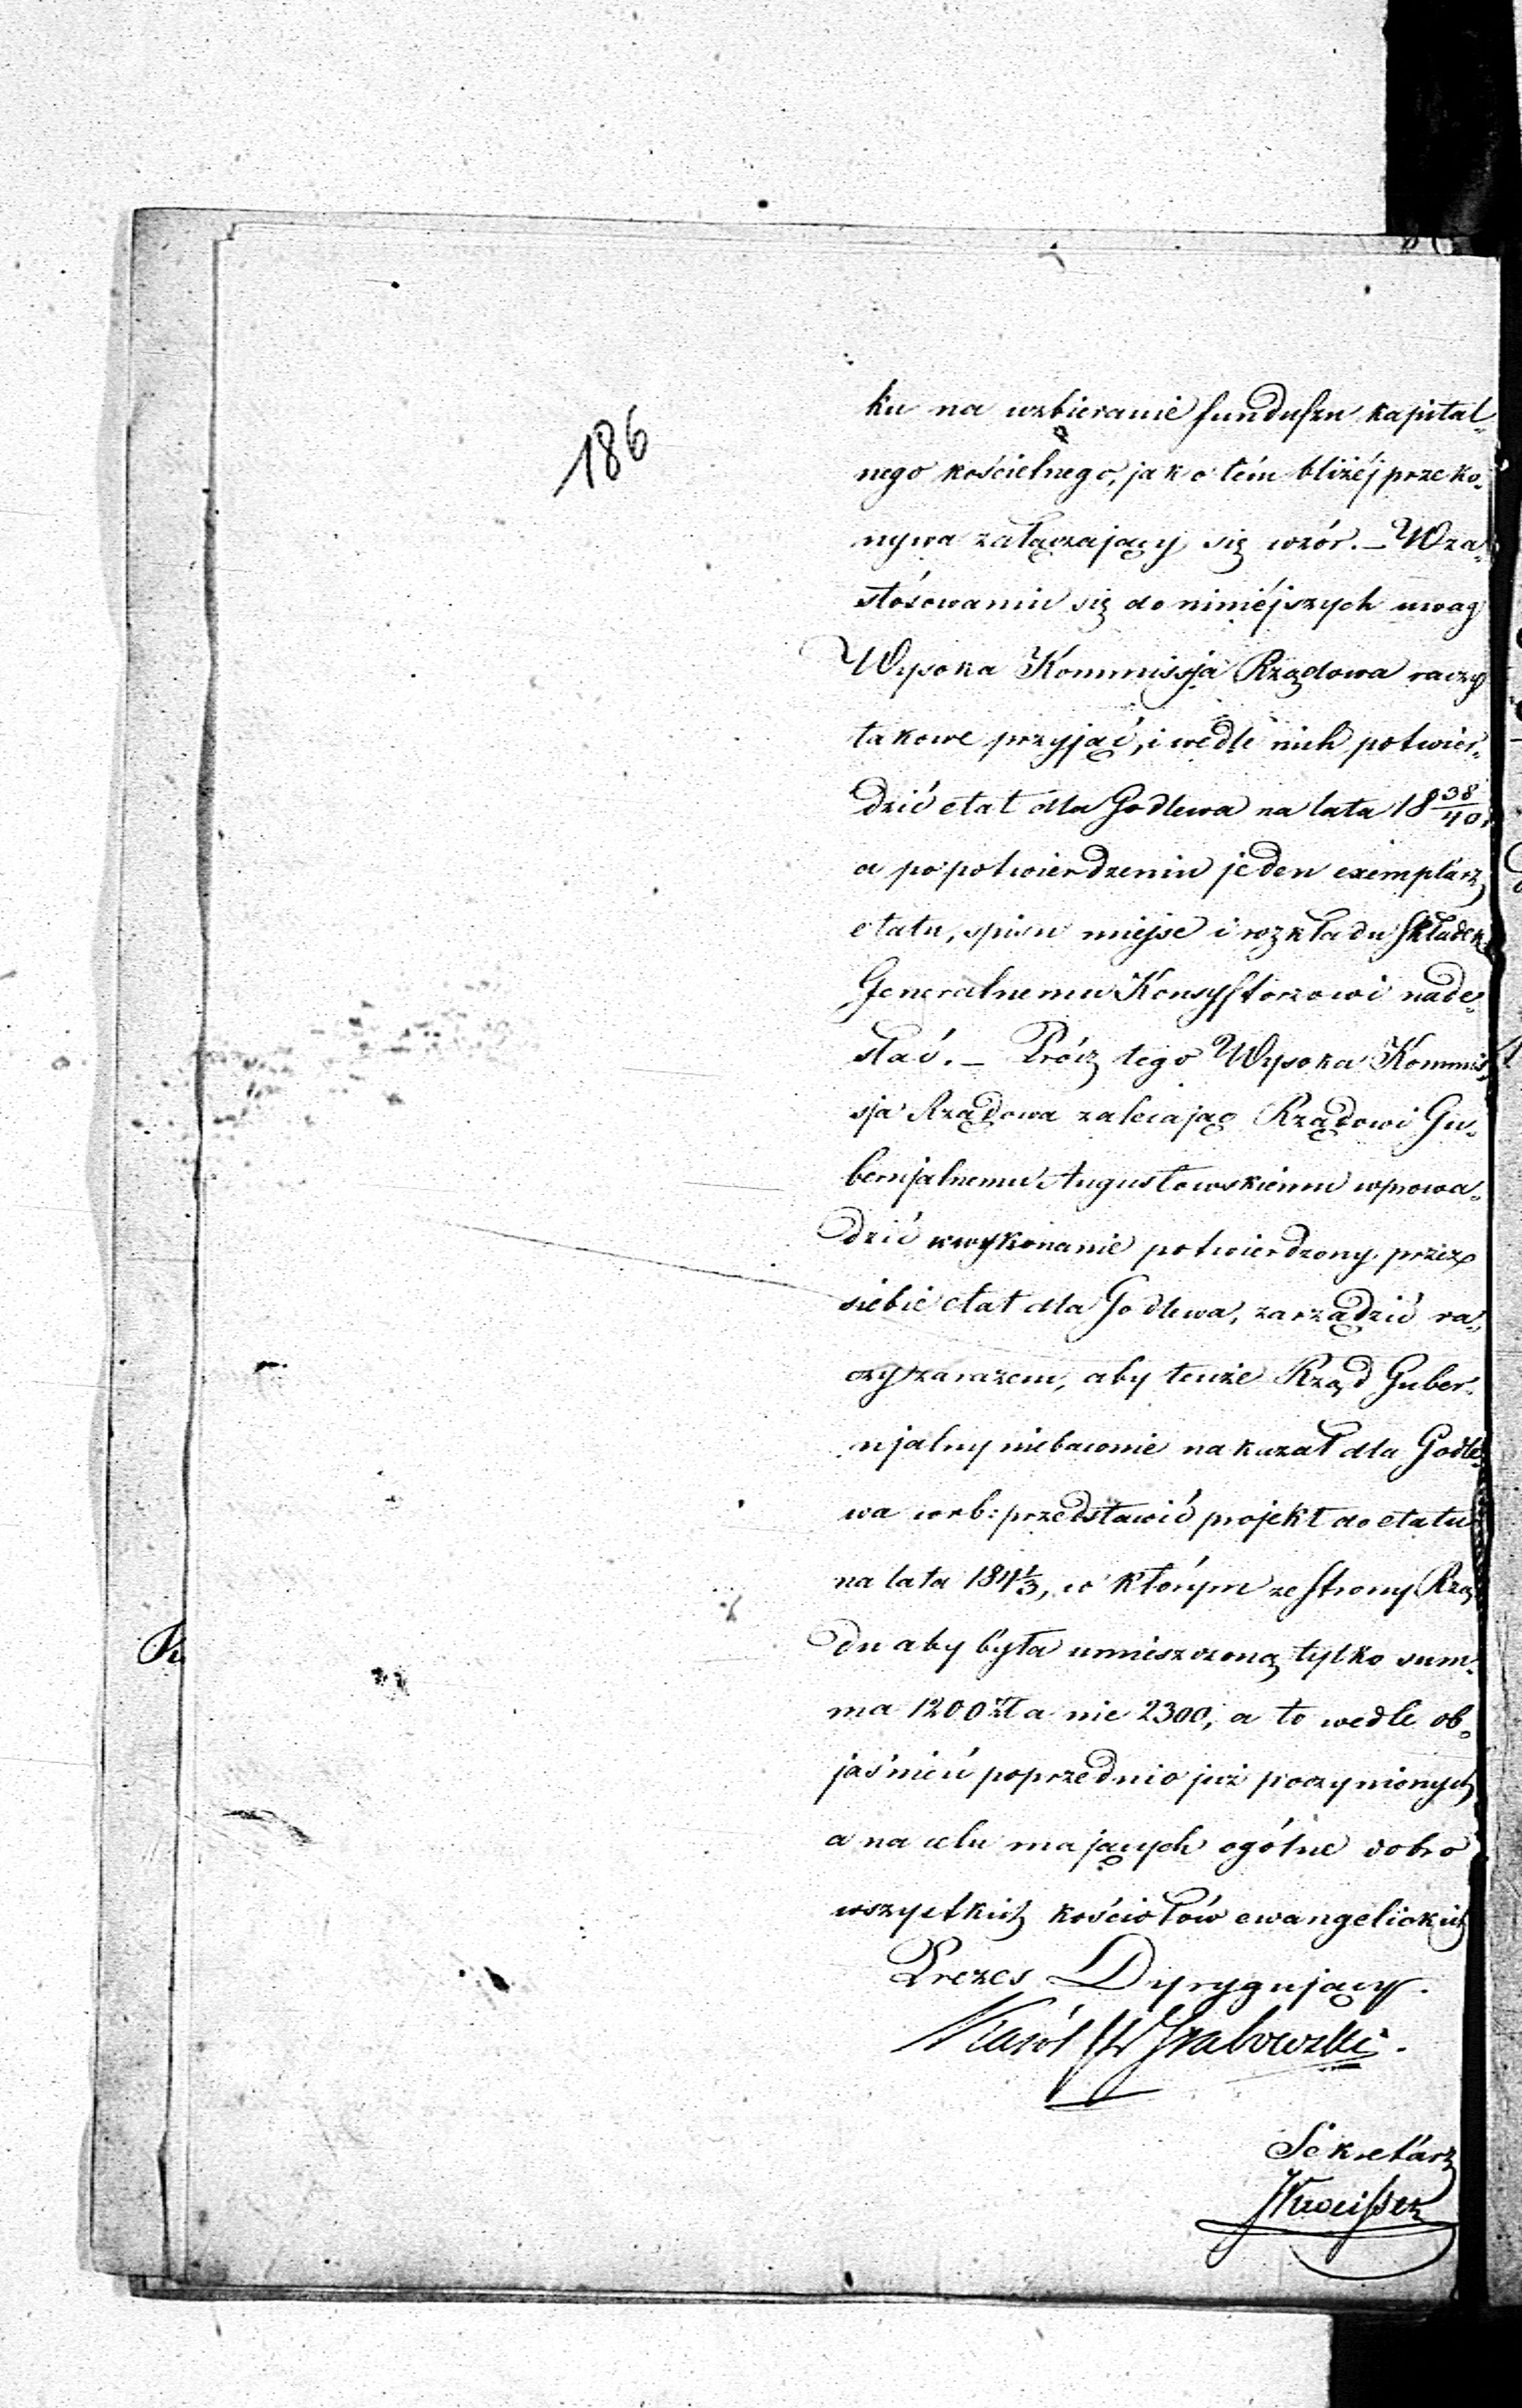 186
ku na uzbieranie funduszu kapital-
nego kościelnego, jak o tém bliżéj przeko-
nywa załączający się wzór. – W za-
stósowaniu się do niniéjszych uwag
Wysoka Kommissja Rządowa raczy
takowe przyjąć, i wedle nich potwier-
dzić etat dla Godlewa na lata 18 38/40,
a po potwierdzeniu jeden exemplarz
etatu, spisu miejsc i rozkładu składek
Generalnemu Konsystorzowi nade-
słać. – Prócz tego Wysoka Kommis-
sja Rządowa zalecając Rządowi Gu-
bernjalnemu Augustowskiemu wprowa-
dzić w wykonanie potwierdzony przez
siebie etat dla Godlewa, zarządzić ra-
czy zarazem, aby tenże Rząd Guber-
njalny niebawnie nakazał dla Godle-
wa w r b: przedstawić projekt do etatu
na lata 184 1/3, w którym ze strony Rzą-
du aby była umieszczoną tylko sum-
ma 1200 zł a nie 2300, a to wedle ob-
jaśnień poprzednio już poczynionych
a na celu mających ogólne dobro
wszystkich kościołów ewangelickich
Prezes Dyrygujący.
Karól Grabowski.
Sekretarz
K